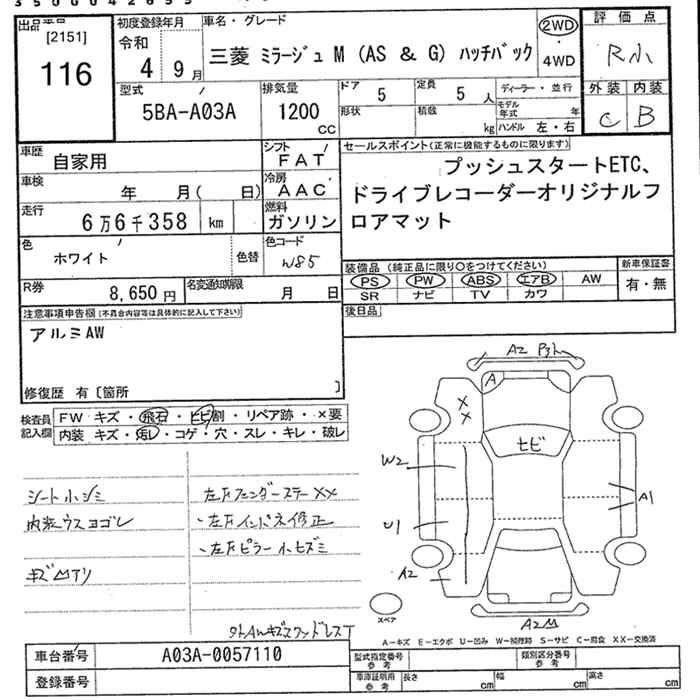 出品番号
[2151]
116
初度登録年月
令和
4 9月
車名・グレード
三菱 ミラージュ M (AS & G) ハッチバック
2WD
・
4WD
評価点
R小
外装 内装
C B
型式
5BA-A03A
排気量
1200
CC
ドア
5
定員
5 人
ディーラー・並行
形状
積載
kg
モデル年式 年
ハンドル 左・右
車歴
自家用
シフト
FAT
車検
年 月( 日)
冷房
AAC
走行
6万6千358 km
燃料
ガソリン
色
ホワイト
色替
色コード
W85
R券
8,650 円
名変通知期限
月 日
セールスポイント(正常に機能するものに限ります)
プッシュスタートETC、
ドライブレコーダーオリジナルフ
ロアマット
装備品 (純正品に限り〇をつけてください)
PS PW ABS エアB AW
SR ナビ TV カワ
新車保証書
有・無
後日品
注意事項申告欄(不具合内容等は具体的に記入して下さい)
アルミAW
修復歴 有〔箇所 〕
検査員
記入欄
FW キズ・飛石・ヒビ割・リペア跡・×要
内装 キズ・汚レ・コゲ・穴・スレ・キレ・破レ
シート小シミ
内装ウスヨゴレ
キズ凹アリ
左Fフェンダーステー××
左Fインパネ修正
左Fピラー小ヒズミ
A2
A
××
ヒビ
W2
U1
A2
A1
A2凹
スペア
A-キズ E-エクボ U-凹み W-補修跡 S-サビ C-腐食 XX-交換済
車台番号
A03A-0057110
登録番号
型式指定番号
参考
類別区分番号
参考
車庫証明用
参考
長さ cm
幅 cm
高さ cm